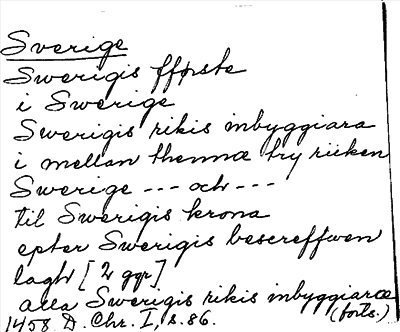 Sverige
Swerigis fførste
i Swerige
Swerigis rikis inbyggiara
i mellan thenna try riiken
Swerige --- och ---
til Swerigis krona
epter Swerigis bescreffwen
lagh [2 ggr]
alla Swerigis rikis inbyggiaræ
(forts.)
1458 D. Chr. I, s. 86.